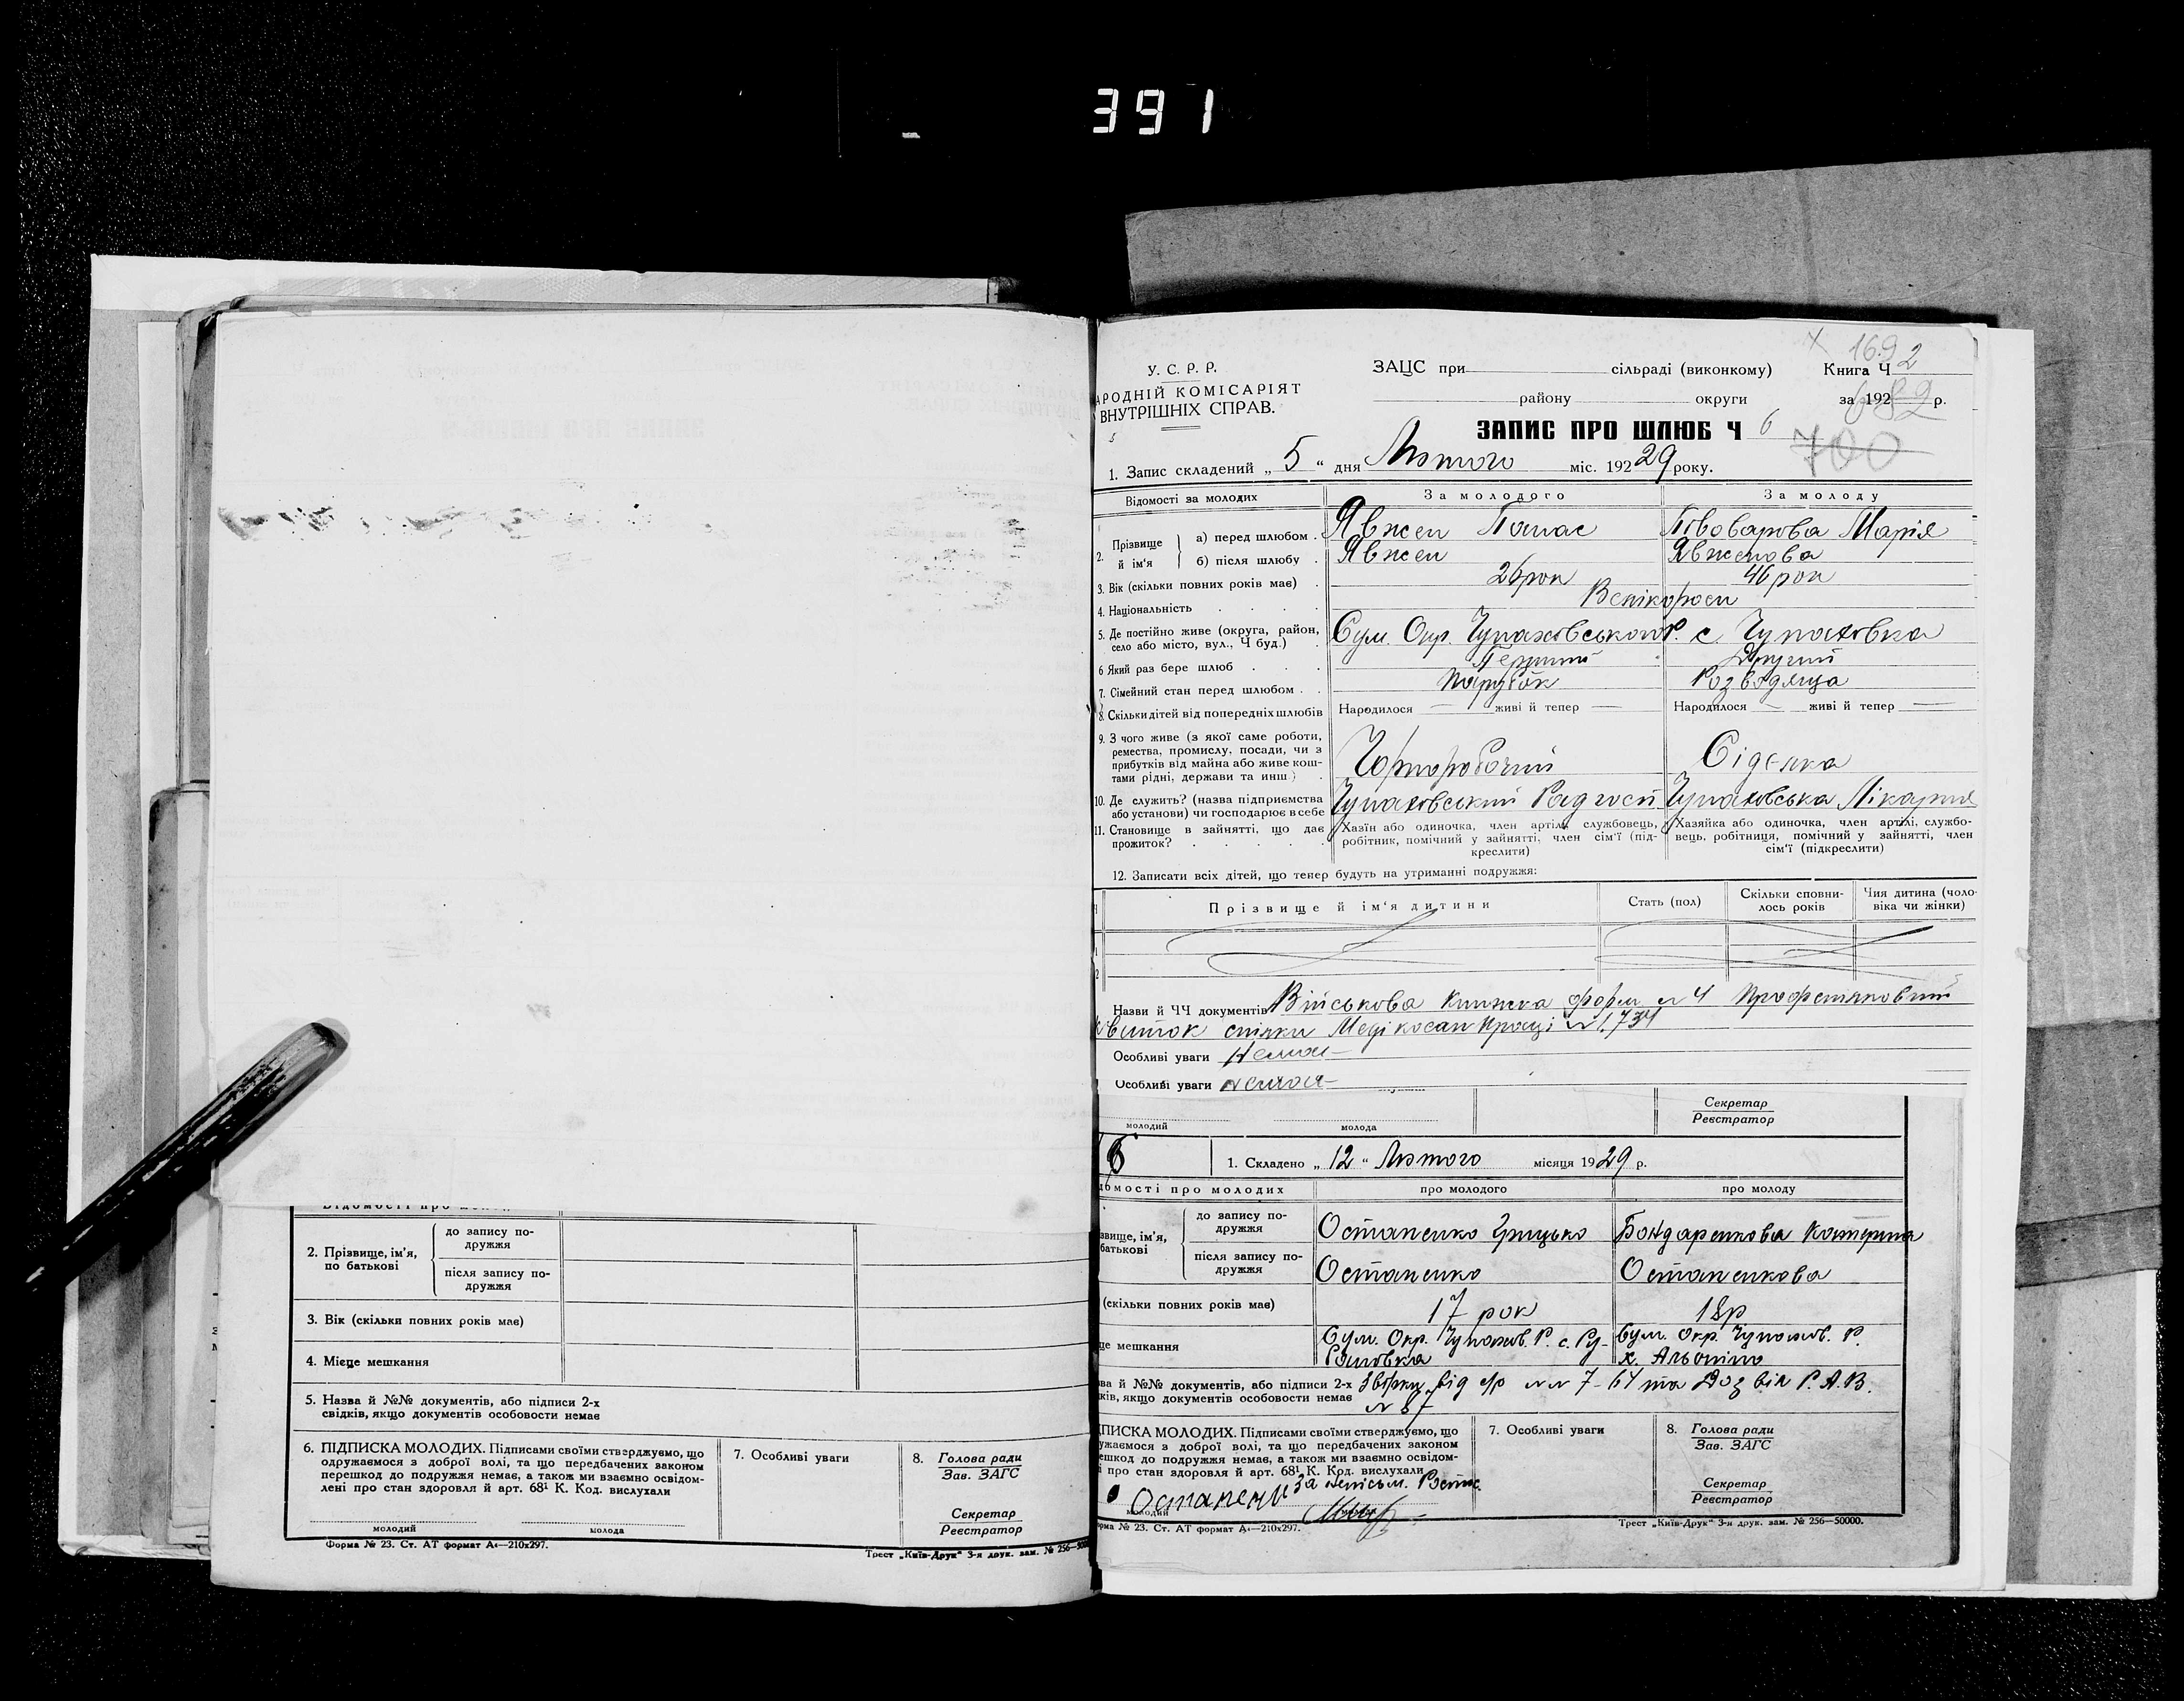 391
Відомості про молодих
2. Прізвище, ім'я, по батькові
до запису подружжя
після запису подружжя
3. Вік (скільки повних років має)
4. Місце мешкання
5. Назва й №№ документів, або підписи 2-х
свідків, якщо документів особовости немає
6. ПІДПИСКА МОЛОДИХ. Підписами своїми стверджуємо, що
одружаємося з доброї волі, та що передбачених законом
перешкод до подружжя немає, а також ми взаємно освідом-
лені про стан здоровля й арт. 68¹ К. Код. вислухали
молодий молода
7. Особливі уваги
8. Голова ради
Зав. ЗАГС
Секретар
Реєстратор
Форма № 23. Ст. АТ формат А4—210х297.
Трест „Київ-Друк" 3-я друк. зам. № 256—500
1692
У. С. Р. Р.
АРОДНІЙ КОМІСАРІЯТ
ВНУТРІШНІХ СПРАВ.
ЗАЦС при сільраді (виконкому) Книга Ч 2
району округи за 192 р.
682
ЗАПИС ПРО ШЛЮБ Ч 6
700
1. Запис складений „ 5 " дня Лютого міс. 192 29 року.
Відомості за молодих За молодого За молоду
2. Прізвище й ім'я
а) перед шлюбом . Явжен Панас Півоварова Марія
б) після шлюбу . Явжен Явженова
3. Вік (скільки повних років має) . 26 рок 46 рок
4. Національність . . . . Велікороси
5. Де постійно живе (округа, район,
село або місто, вул., Ч буд.) . Сум. Окр. Чупахівськ. Р. с. Чупахівка
6 Який раз бере шлюб . . . Перший Другий
7. Сімейний стан перед шлюбом . . Парубок Розведениця
8. Скільки дітей від попередніх шлюбів Народилося — живі й тепер — Народилося — живі й тепер —
9. З чого живе (з якої саме роботи,
ремества, промислу, посади, чи з
прибутків від майна або живе кош-
тами рідні, держави та инш.) . Чорноробочий Сіделка
10. Де служить? (назва підприємства
або установи) чи господарює в себе Чупахівський Радгосп Чупахівська Лікарня
11. Становище в зайнятті, що дає
прожиток? . . . . .
Хазїн або одиночка, член артілі, службовець,
робітник, помічний у зайнятті, член сім'ї (під-
креслити)
Хазяйка або одиночка, член артілі, службо-
вець, робітниця, помічний у зайнятті, член
сім'ї (підкреслити)
12. Записати всіх дітей, що тепер будуть на утриманні подружжя:
Прізвище й ім'я дитини Стать (пол) Скільки сповни-
лось років Чия дитина (чоло-
віка чи жінки)
1
2
Назви й ЧЧ документів Військова книжка форм. № 4 Профспілковий
квиток спілки Медікосанпраці № 1734
Особливі уваги Немає —
Особливі уваги Немає —
молодий молода
Секретар
Реєстратор
6 1. Складено „ 12 " Лютого місяця 19 29 р.
домості про молодих про молодого про молоду
звище, ім'я,
батькові
до запису по-
дружжя Остапенко Грицько Бондаренкова Катерина
після запису по-
дружжя Остапенко Остапенкова
(скільки повних років має) 17 рок 18 р
це мешкання Сум. Окр. Чупахов. Р. с. Ру- Сум. окр. Чупахов. Р.
бановка х. Альошіно
ва й №№ документів, або підписи 2-х
ків, якщо документів особовости немає від с/р №№ 7-64 та Дозвіл Р. А. В.
№ 87
ДПИСКА МОЛОДИХ. Підписами своїми стверджуємо, що
ужаємося з доброї волі, та що передбачених законом
ешкод до подружжя немає, а також ми взаємно освідом-
і про стан здоровля й арт. 68¹ К. Код. вислухали
Остапенк за неписьм.
молодий
7. Особливі уваги
8. Голова ради
Зав. ЗАГС
Секретар
Реєстратор
орма № 23. Ст. АТ формат А4—210х297.
Трест „Київ-Друк" 3-я друк. зам. № 256—50000.